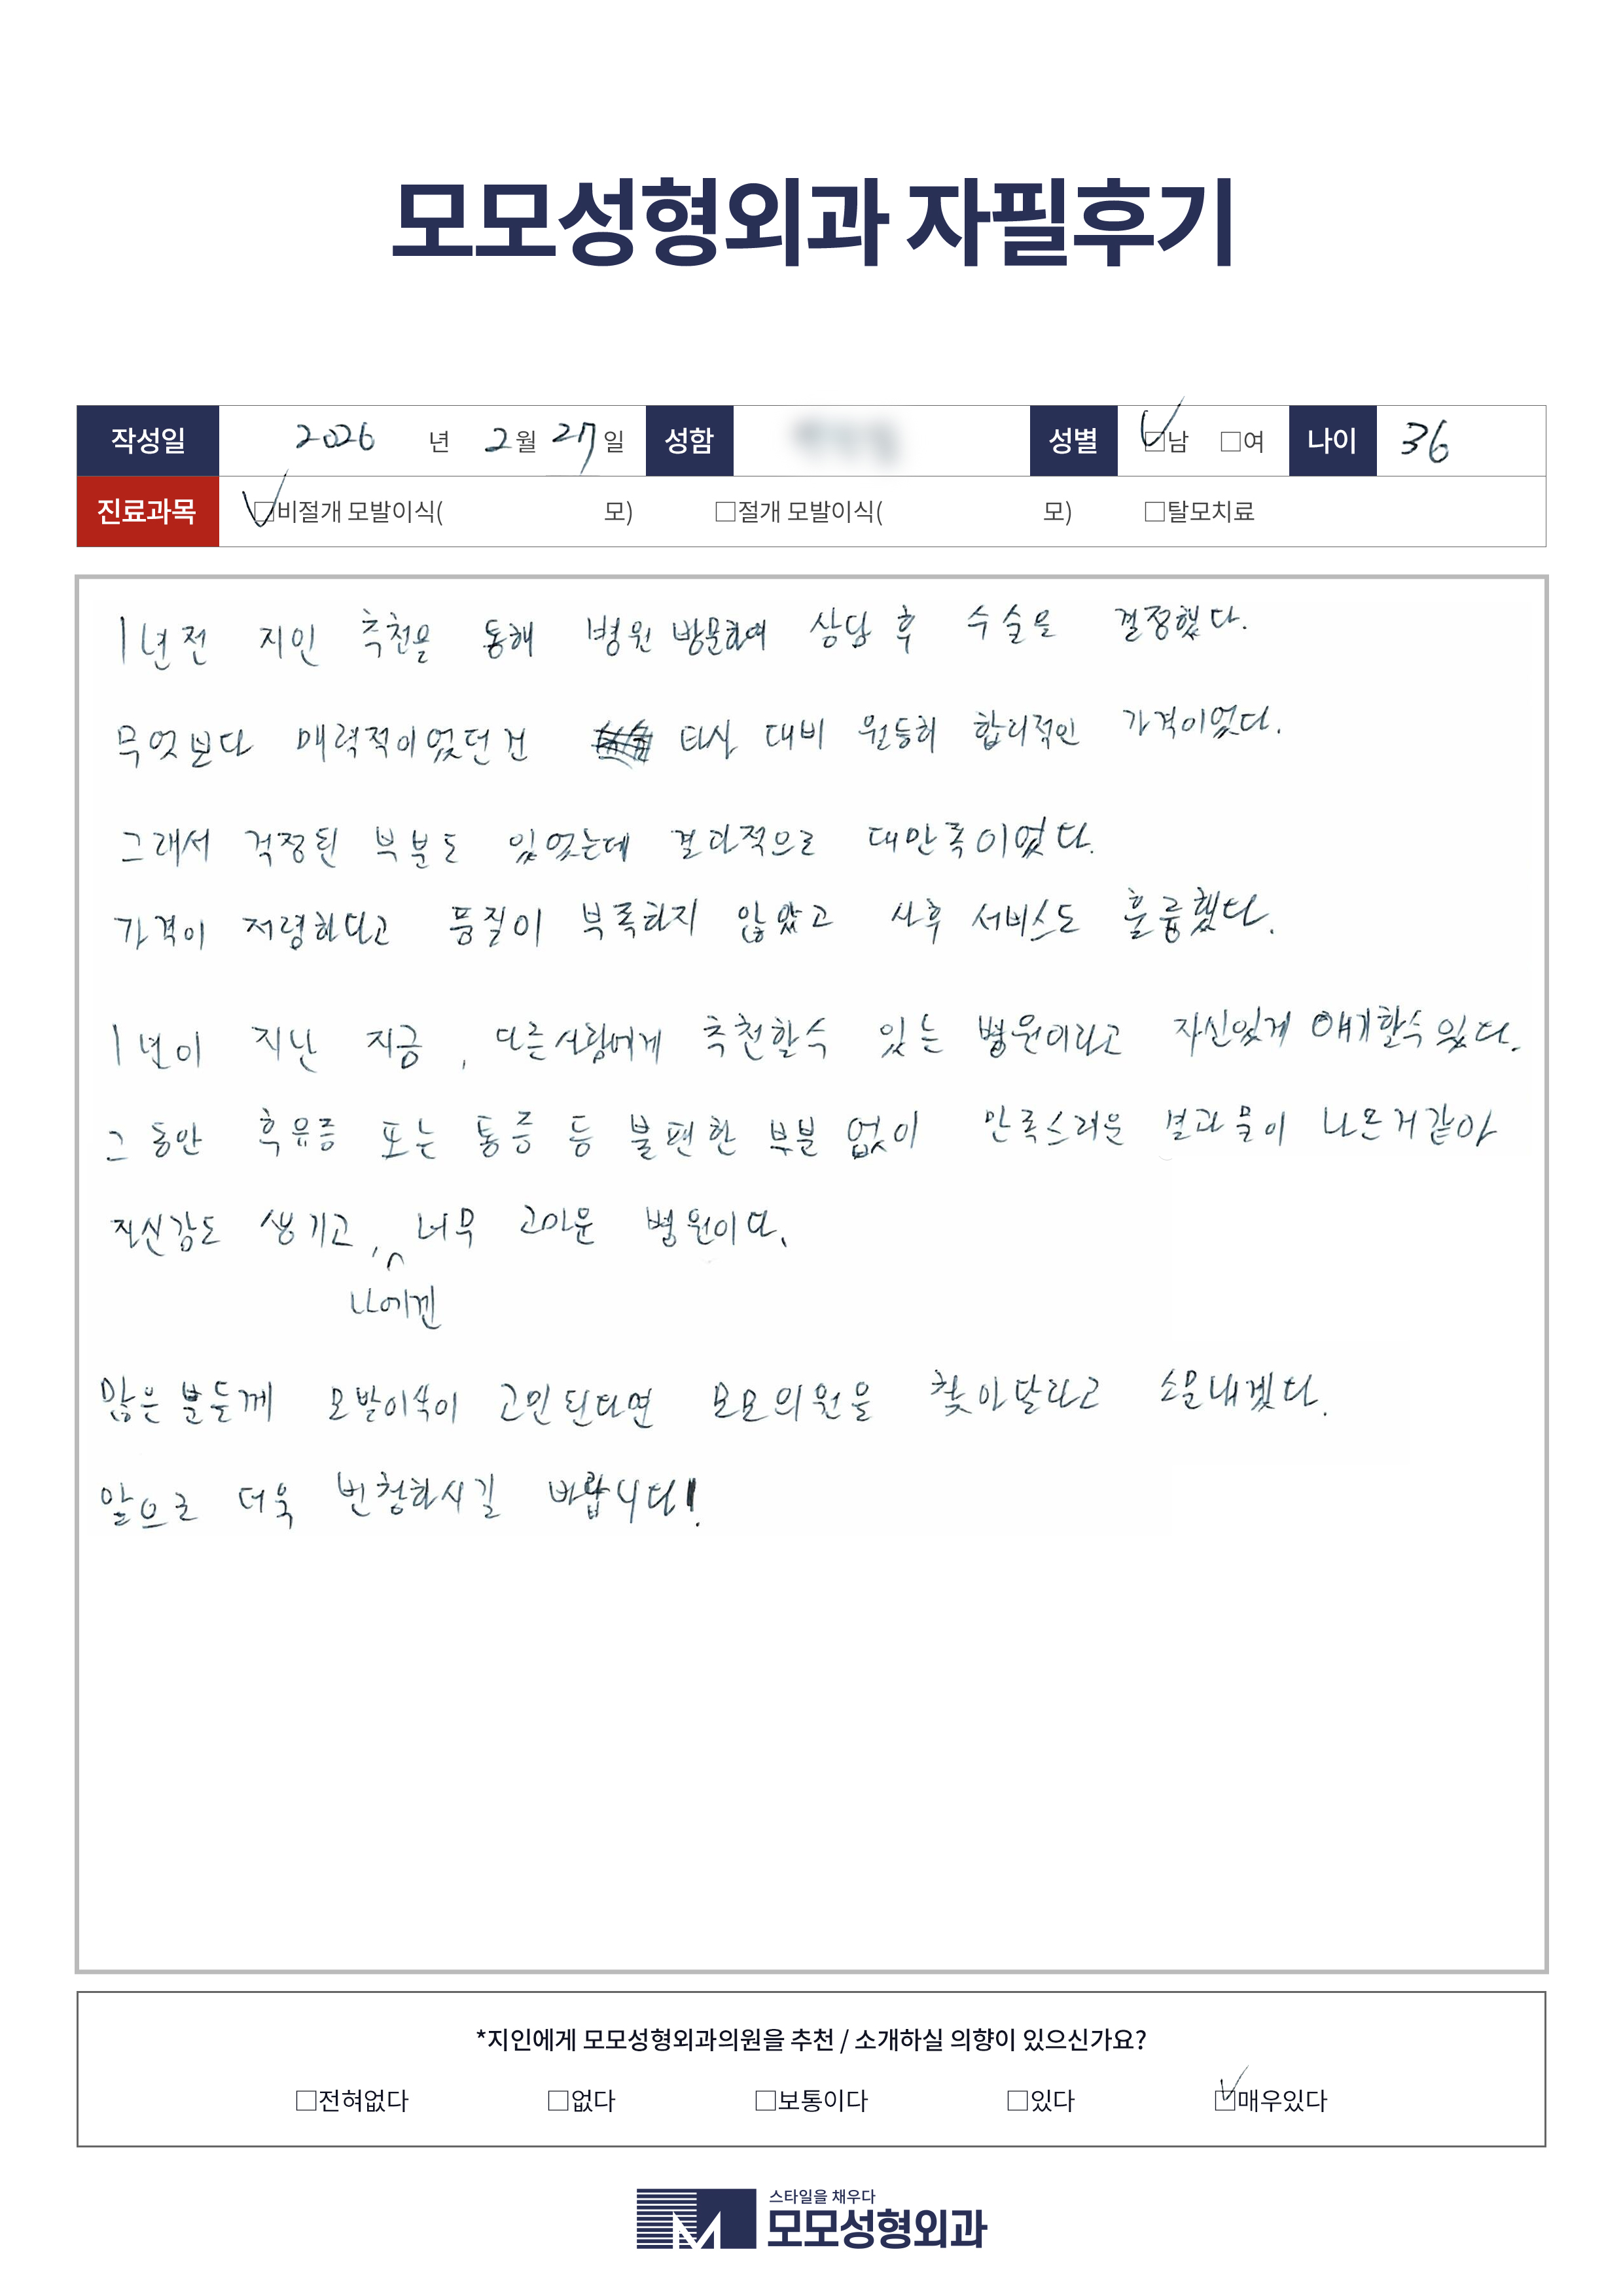 모모성형외과 자필후기
작성일 2026 년 2월 27일 성함 성별 □남 □여 나이 36
진료과목 □비절개 모발이식( 모) □절개 모발이식( 모) □탈모치료
1년전 지인 추천을 통해 병원 방문하여 상담 후 수술을 결정했다.
무엇보다 매력적이었던건 타사 대비 월등히 합리적인 가격이었다.
그래서 걱정된 부분도 있었는데 결과적으로 대만족이었다.
가격이 저렴하다고 품질이 부족하지 않았고 사후 서비스도 훌륭했다.
1년이 지난 지금, 다른사람에게 추천할수 있는 병원이라고 자신있게 얘기할수있다.
그동안 후유증 또는 통증 등 불편한 부분 없이 만족스러운 결과물이 나온거같아
자신감도 생기고, 너무 고마운 병원이다.
나에겐
많은 분들께 모발이식이 고민된다면 모모의원을 찾아달라고 소문내겠다.
앞으로 더욱 번청하시길 바랍니다!
*지인에게 모모성형외과의원을 추천 / 소개하실 의향이 있으신가요?
□전혀없다 □없다 □보통이다 □있다 □매우있다
스타일을 채우다
모모성형외과